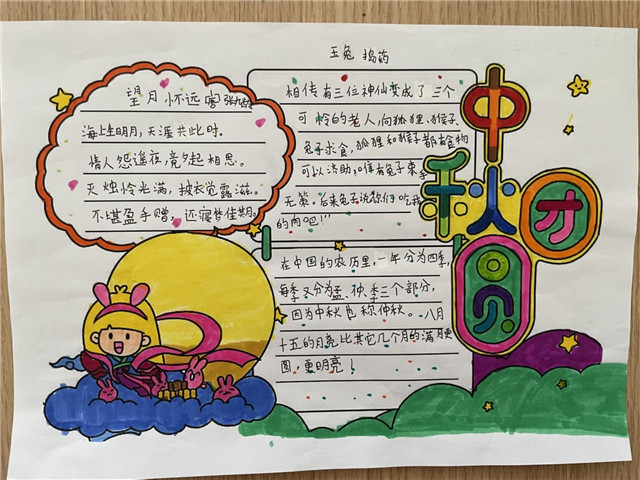 望月怀远 张九龄
海上生明月,天涯共此时。
情人怨遥夜,竟夕起相思。
灭烛怜光满,披衣觉露滋。
不堪盈手赠,还寝梦佳期。
玉兔捣药
相传有三位神仙变成了三个
可怜的老人,向狐狸、猴子、
兔子求食,狐狸和猴子都有食物
可以济助,唯有兔子束手
无策。后来兔子说你们吃我
的肉吧!"
在中国的农历里,一年分为四季,
每季又分为孟、仲、季三个部分,
因为中秋也称仲秋。八月
十五的月亮比其它几个月的满月更
圆,更明亮!
中
秋
团
圆